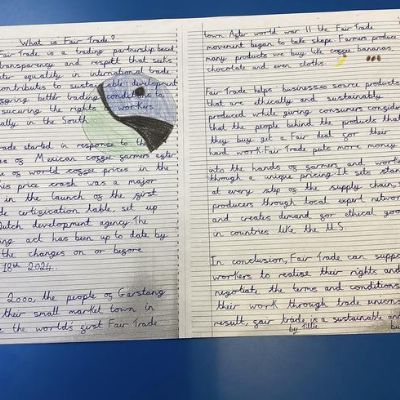 What is Fair Trade?
Fair Trade is a trading partnership based
transparency and respect that seeks
equality in international trade
contributes to sustainable development
better trading conditions to
securing the rights workers
in the South
Trade started in response to the
of Mexican coffee farmers after
of world coffee prices in the
price crash was a major
in the launch of the first
certification table, set up
Dutch development agency. The
act has been up to date by
the changes on or before
18th 2024.
2000, the people of Garstang
their small market town in
the world's first Fair Trade
town After world war II the Fair Trade
movement began to take shape. Farmers produce
many products we buy like coffee bananas
chocolate and even cloths.
Fair Trade helps businesses source products
that are ethically and sustainably
produced while giving consumers
that the people behind the products that
they buy get a Fair deal for their
hard work. Fair Trade puts more money
into the hands of farmers and
through a unique pricing. It sets
at every step of the supply chain,
producers through local expert
and creates demand for ethical
in countries like the U.S
In conclusion, Fair Trade can
workers to realise their rights and
negotiate the terms and conditions
their work through trade unions
result, fair trade is a sustainable and
by Tillie